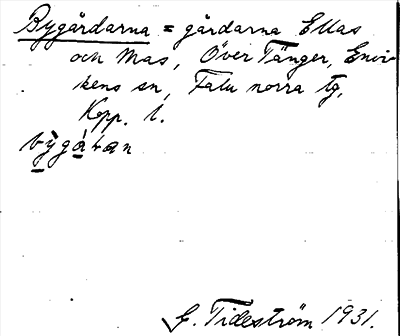 Bygårdarna = gårdarna Ellas
och Mas, Över Tänger, Envi-
kens sn, Falu norra tg,
Kopp. l.
G. Tideström 1931.